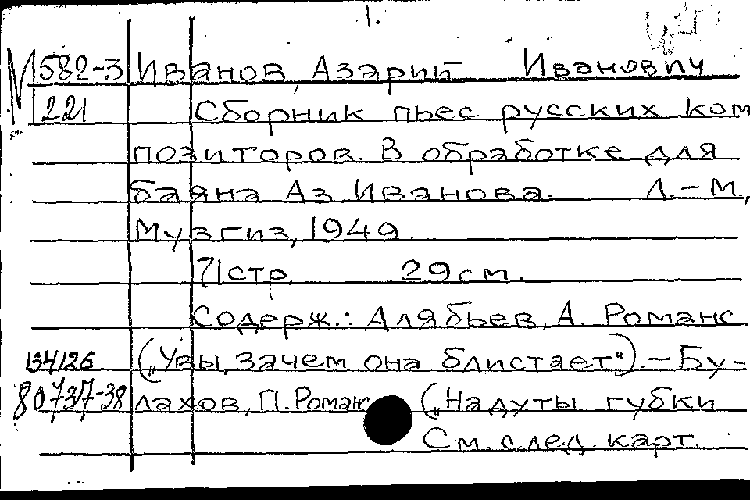 1.
М 582-3 Иванов, Азарий Иванович
221 Сборник пьес русских ком
позиторов. В обработке для
баяна Аз. Иванова. Л.-М,
Музгиз, 1949.
71 стр. 29 см.
Содерж.: Алябьев, А. Романс
134126 („Увы, зачем она блистает"). – Бу-
80737-38 лахов, П. Романс („Надуты губки
См. след. карт.